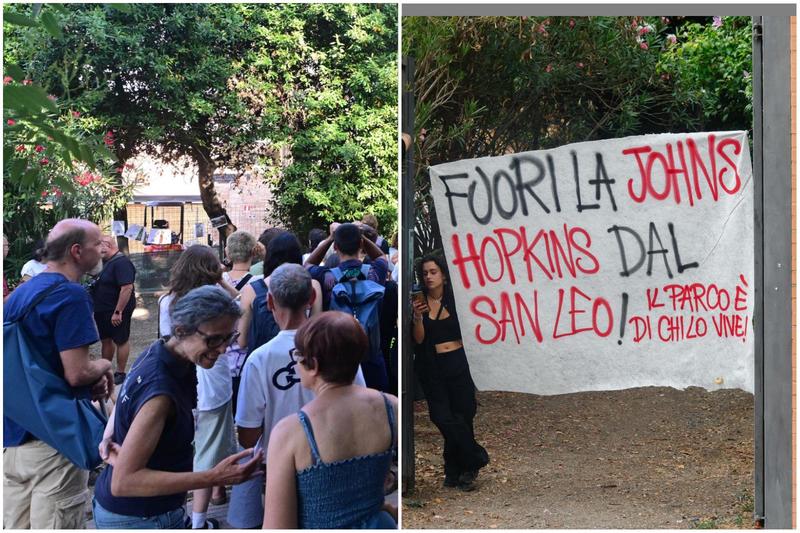 FUORI LA JOHNS
HOPKINS DAL
SAN LEO!
IL PARCO È
DI CHI LO VIVE!